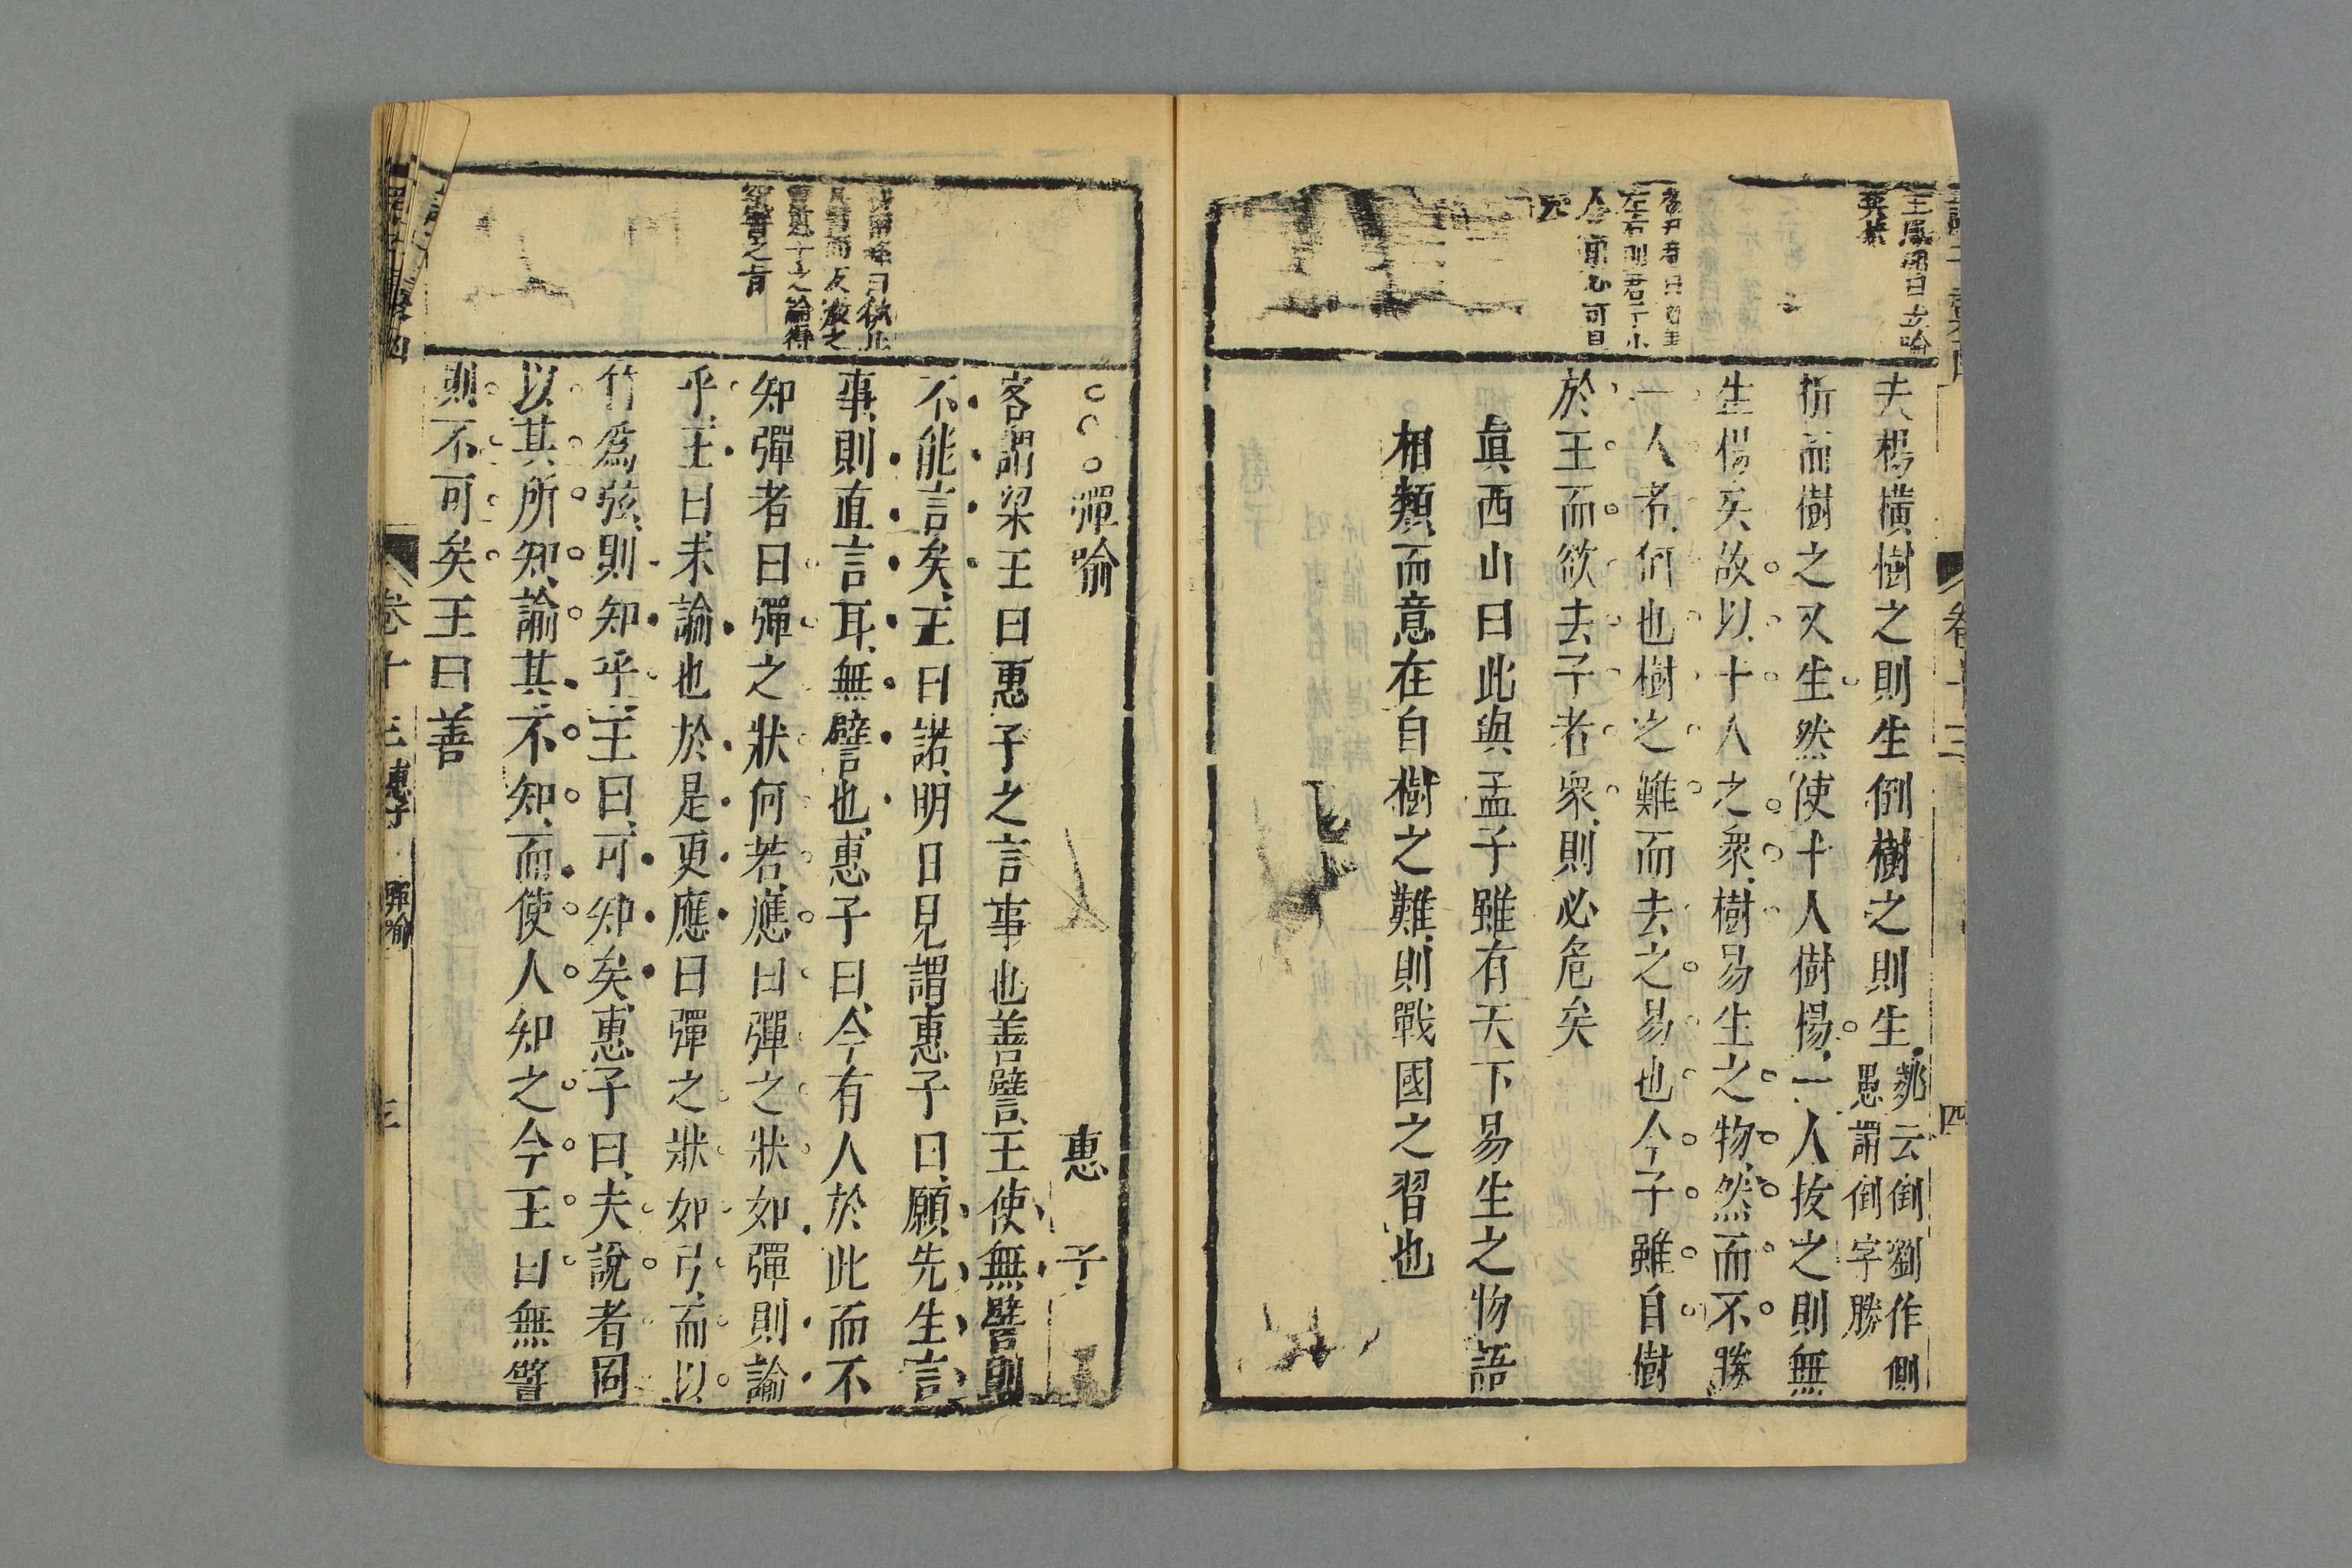 夫楊橫樹之則生倒樹之則生鄭云倒劉作側
愚謂倒字勝
折而樹之又生然使十人樹楊一人拔之則無
生楊矣故以十人之衆樹易生之物然而不勝
一人者何也樹之難而去之易也今子雖自樹
於王而欲去子者衆則必危矣
眞西山曰此與孟子雖有天下易生之物語
相類而意在自樹之難則戰國之習也
卷十三
四
彈喻
惠子
客謂梁王曰惠子之言事也善譬王使無譬則
不能言矣王曰諾明日見謂惠子曰願先生言
事則直言耳無譬也惠子曰今有人於此而不
知彈者曰彈之狀何若應曰彈之狀如彈則諭
乎王曰未諭也於是更應曰彈之狀如弓而以
竹爲弦則知乎王曰可知矣惠子曰夫說者固
以其所知諭其不知而使人知之今王曰無譬
則不可矣王曰善
之論得
譬之旨
卷十三 惠子 彈喻